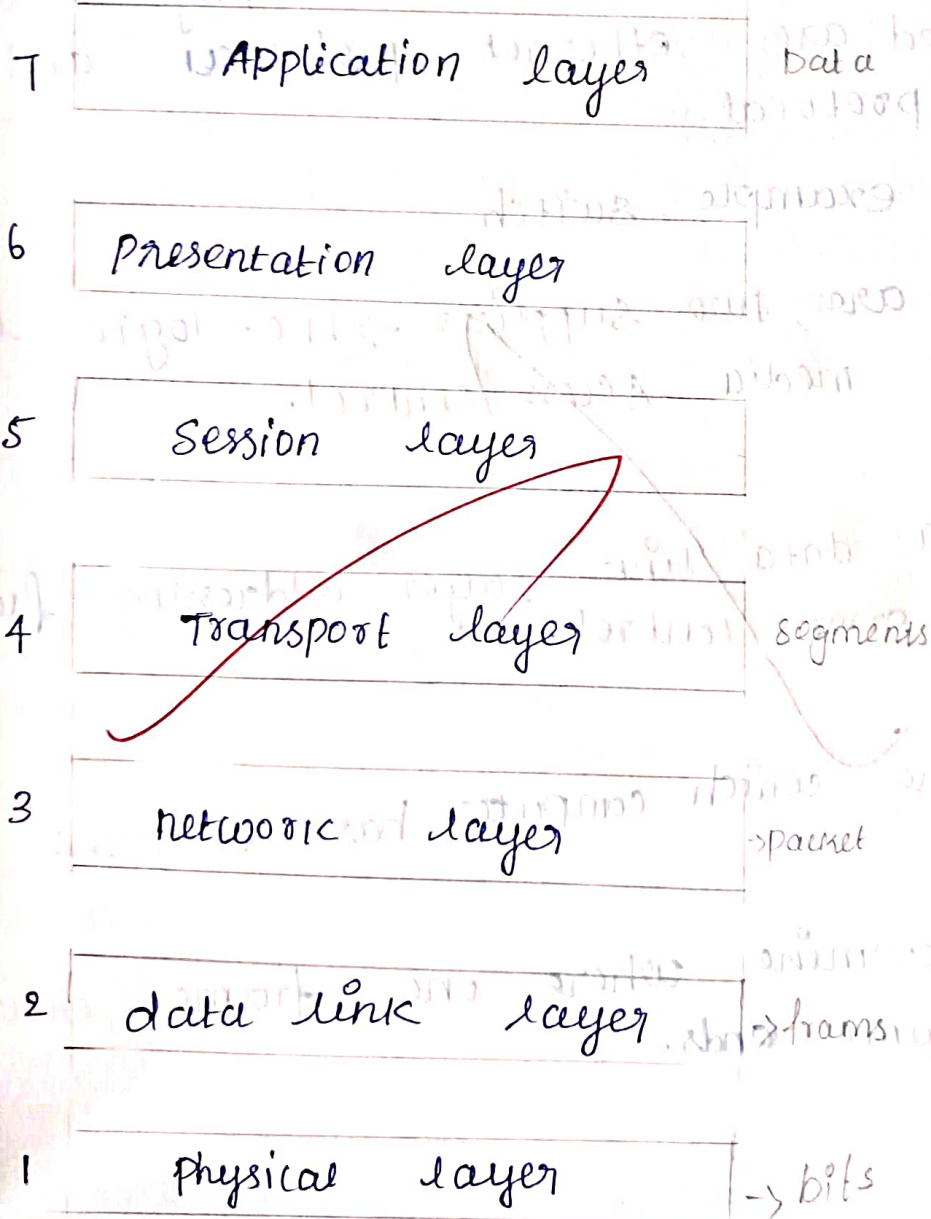 7 Application layer Data
6 Presentation layer
5 Session layer
4 Transport layer segments
3 network layer →packet
2 data link layer →frams
1 physical layer → bits